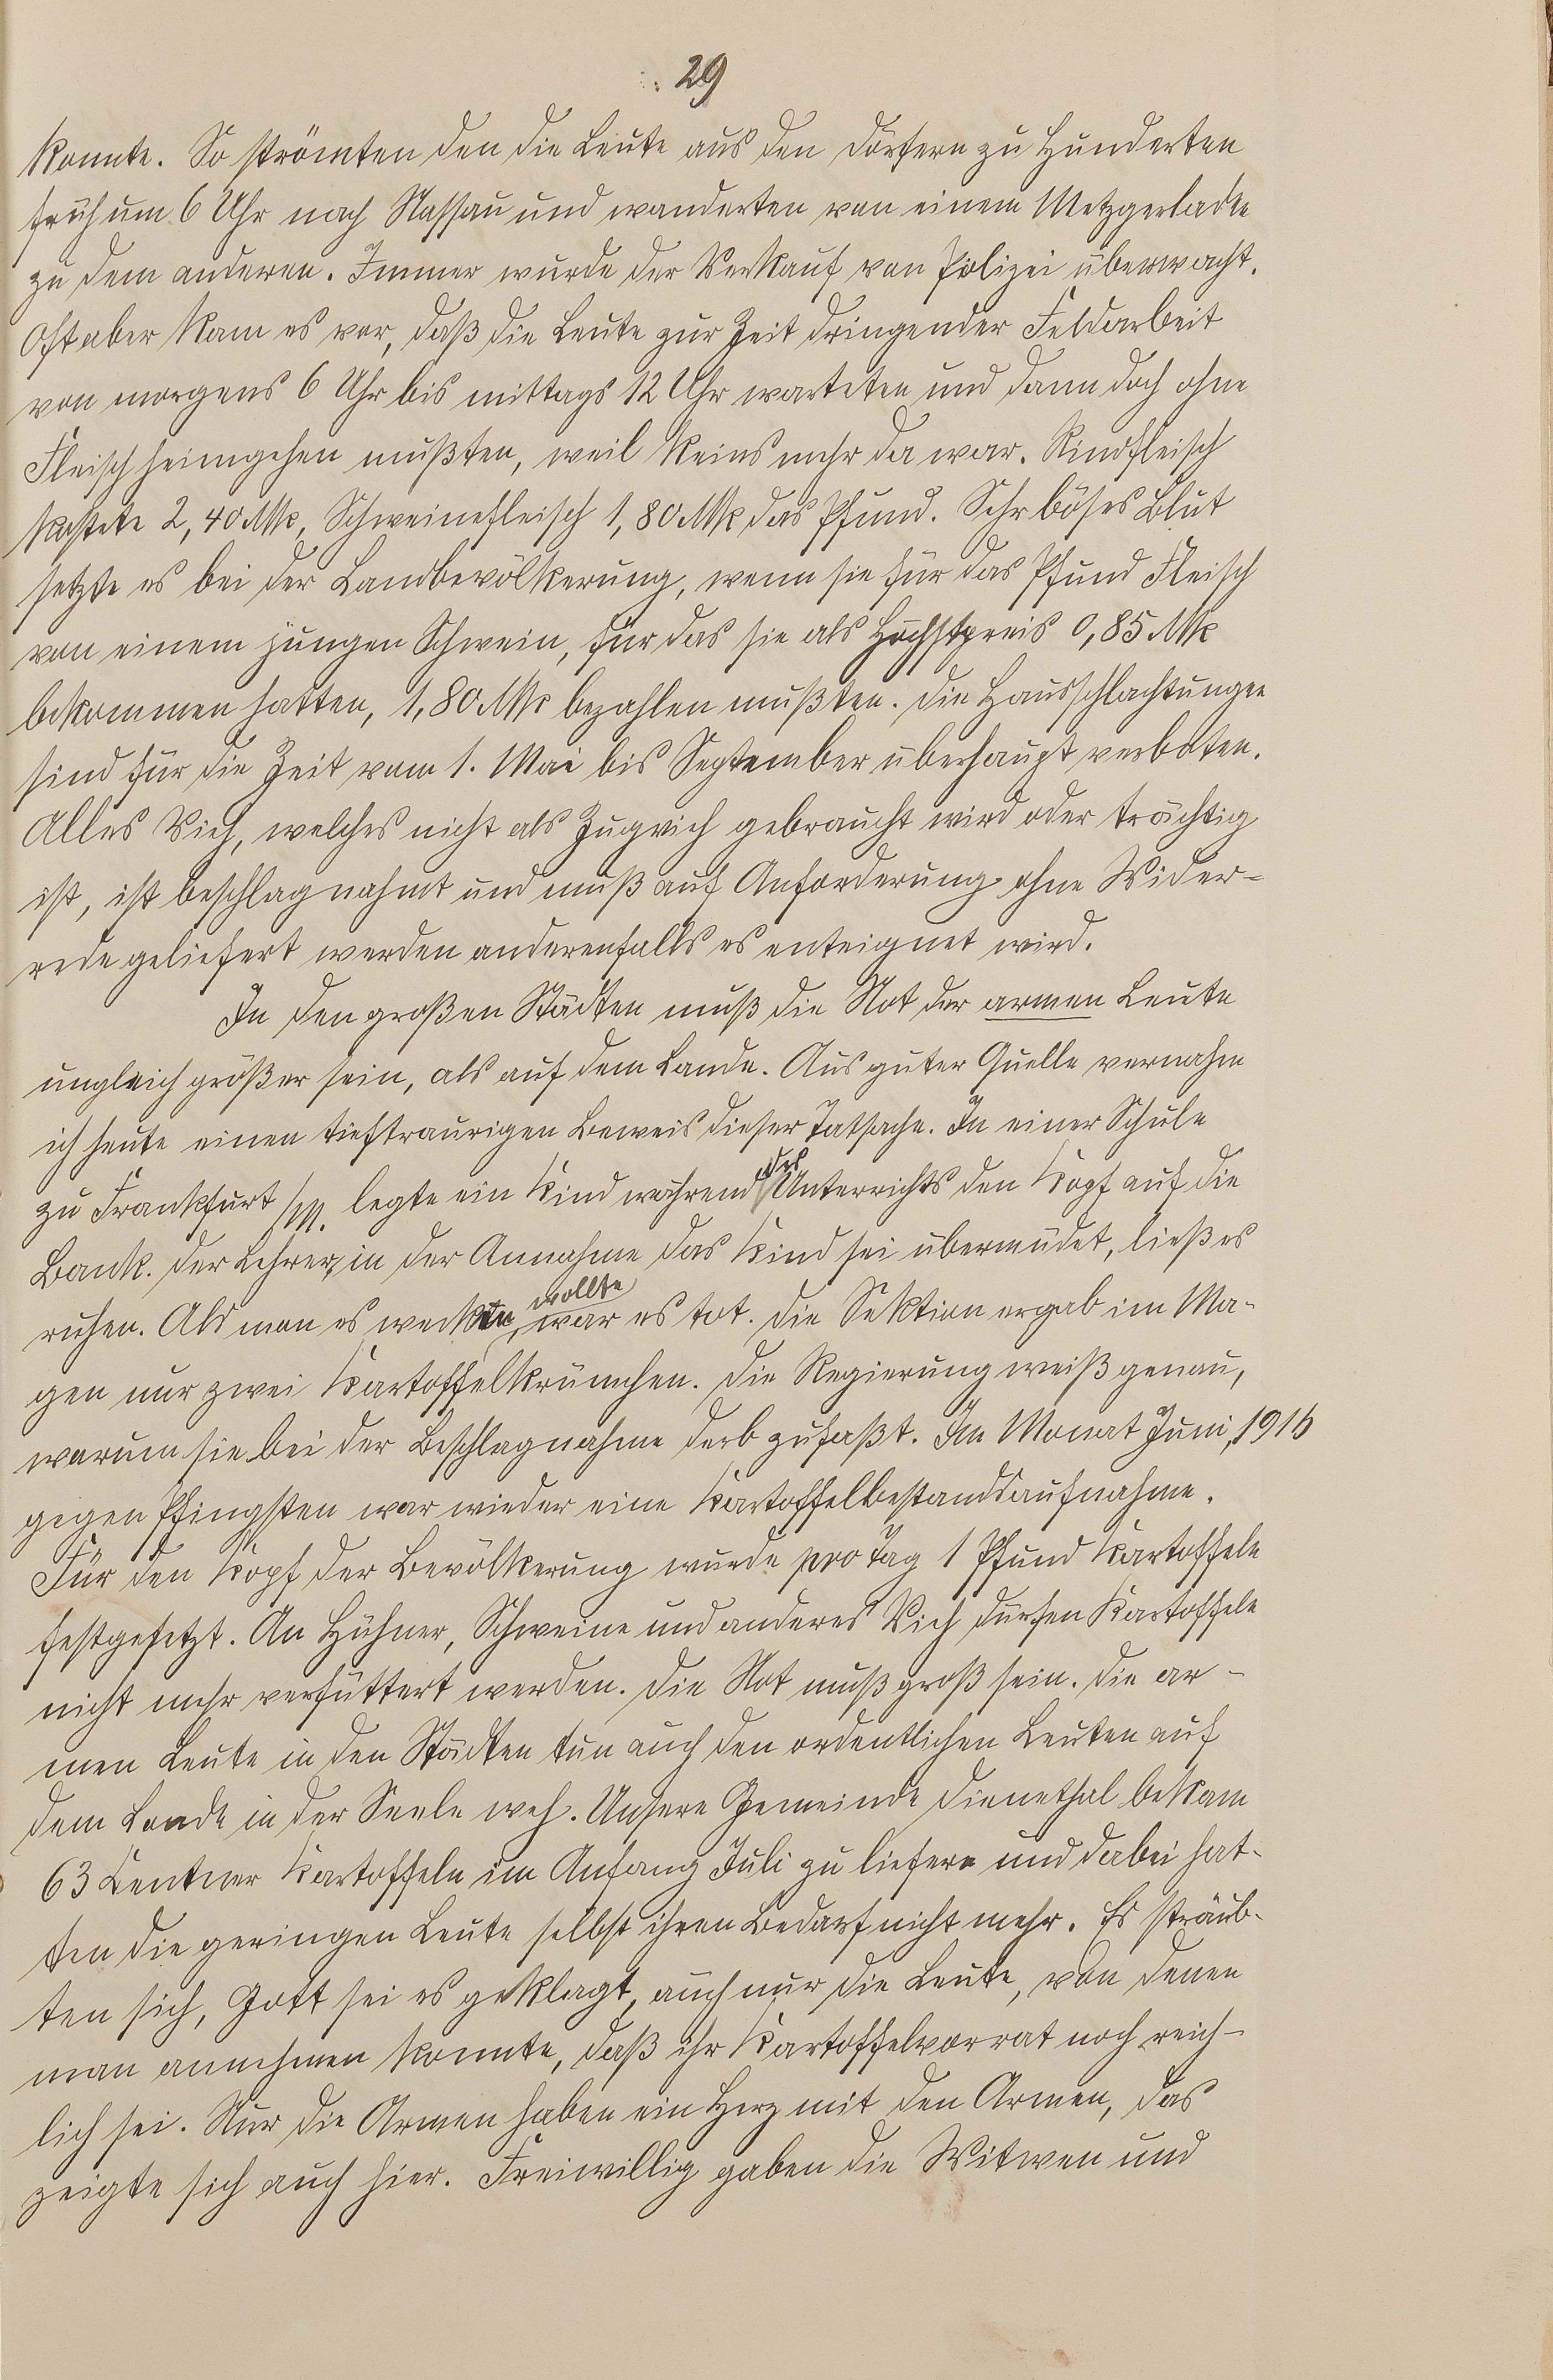 29
konnte. So strömten den die Leute aus den Dörfern zu Hunderten
früh um 6 Uhr nach Nassau und wanderten von einem Metzgerladen
zu dem anderen. Immer wurde der Verkauf von Polizei überwacht.
Oft aber kam es vor, daß die Leute zur Zeit dringender Feldarbeit
von morgens 6 Uhr bis mittags 12 Uhr warteten und dann doch ohne
Fleisch heimgehen mußten, weil keins mehr da war. Rindfleisch
kostete 2,40 Mk, Schweinefleisch 1,80 Mk das Pfund. Sehr böses Blut
setzte es bei der Landbevölkerung, wenn sie für das Pfund Fleisch
von einem jungen Schwein, für das sie als Höchstpreis 0,85 Mk
bekommen hatten, 1,80 Mk bezahlen mußten. Die Hausschlachtungen
sind für die Zeit vom 1. Mai bis September überhaupt verboten.
Alles Vieh, welches nicht als Zugvieh gebraucht wird oder trächtig
ist, ist beschlagnahmt und muß auf Anforderung ohne Wider-
rede geliefert werden anderenfalls es enteignet wird.
In den großen Städten muß die Not der armen Leute
ungleich größer sein, als auf dem Lande. Aus guter Quelle vernahm
ich heute einen tieftraurigen Beweis dieser Tatsache. In einer Schule
zu Frankfurt /M. legte ein Kind während des Unterrichts den Kopf auf die
Bank. Der Lehrer, in der Annahme das Kind sei übermüdet, ließ es
ruhen. Als man es wecken wollte, war es tot. Die Sektion ergab im Ma-
gen nur zwei Kartoffelkrümchen. Die Regierung weiß genau,
warum sie bei der Beschlagnahme derb zufaßt. Im Monat Juni, 1916
gegen Pfingsten war wieder eine Kartoffelbestandsaufnahme.
Für den Kopf der Bevölkerung wurde pro Tag 1 Pfund Kartoffeln
festgesetzt. An Hühner, Schweine und anderes Vieh durfen Kartoffeln
nicht mehr verfüttert werden. Die Not muß groß sein. Die ar-
men Leute in den Städten tun auch den ordentlichen Leuten auf
dem Lande in der Seele weh. Unsere Gemeinde Dienethal bekam
63 Centner Kartoffeln im Anfang Juli zu liefern und dabei hat-
ten die geringen Leute selbst ihren Bedarf nicht mehr. Es sträub-
ten sich, Gott sei es geklagt, auch nur die Leute, von denen
man annehmen konnte, daß ihr Kartoffelvorrat noch reich-
lich sei. Nur die Armen haben ein Herz mit den Armen, das
zeigte sich auch hier. Freiwillig gaben die Witwen und